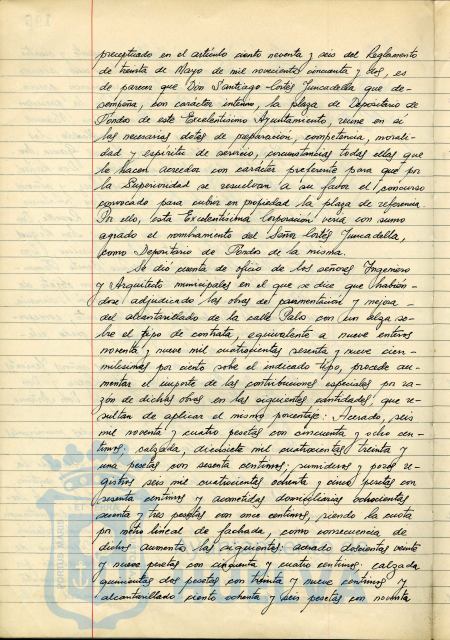 preceptuado en el artículo ciento noventa y seis del Reglamento
de treinta de Mayo de mil novecientos cincuenta y dos, es
de parecer que Don Santiago Cortés Juncadella que de-
sempeña, con carácter interino, la plaza de Depositario de
Fondos de este Excelentísimo Ayuntamiento, reune en si
las necesarias dotes de preparación, competencia, morali-
dad y espíritu de servicio, circunstancias todas ellas que
le hacen acreedor con carácter preferente para que por
la Superioridad se resuelva a su favor el concurso
convocado para cubrir en propiedad la plaza de referencia.
Por ello, esta Excelentísima Corporación vería con sumo
agrado el nombramiento del Señor Cortés Juncadella,
como Depositario de Fondos de la misma.
Se dió cuenta de oficio de los señores Ingeniero
y Arquitecto municipales en el que se dice que habién-
dose adjudicado las obras de pavimentación y mejora
del alcantarillado de la calle Palos con un alza so-
bre el tipo de contrata, equivalente a nueve enteros
noventa y nueve mil cuatrocientas sesenta y nueve cien-
milésimas por ciento sobre el indicado tipo, procede au-
mentar el importe de las contribuciones especiales por ra-
zón de dichas obras en las siguientes cantidades, que re-
sultan de aplicar el mismo porcentaje: Acerado, seis
mil noventa y cuatro pesetas con cincuenta y ocho cen-
timos; calzada, diecisiete mil cuatrocientas treinta y
una pesetas con sesenta centimos; sumideros y pozos re-
gistros seis mil cuatrocientas ochenta y cinco pesetas con
sesenta centimos y acometidas domiciliarias ochocientas
y tres pesetas con once centimos, siendo la cuota
por metro lineal de fachada, como consecuencia de
dichos aumentos las siguientes: acerado doscientas veinte
y nueve pesetas con cincuenta y cuatro centimos; calzada
quinientas dos pesetas con treinta y nueve centimos y
alcantarillado ciento ochenta y seis pesetas con noventa